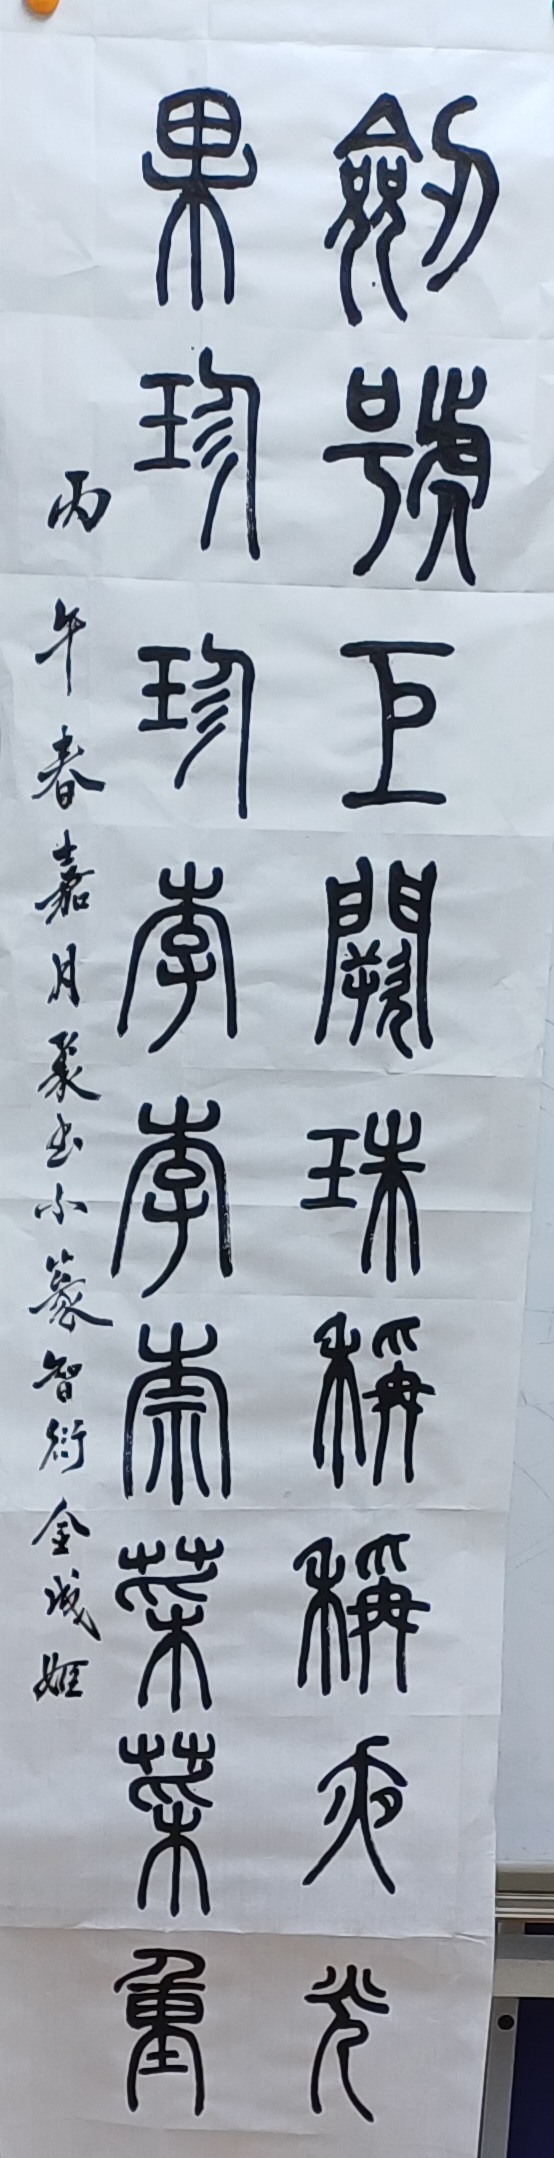 劍號巨闕珠稱稱夜光
果珍珍李李柰菜菜重
丙午春嘉月聚书小篆智衍金成姬